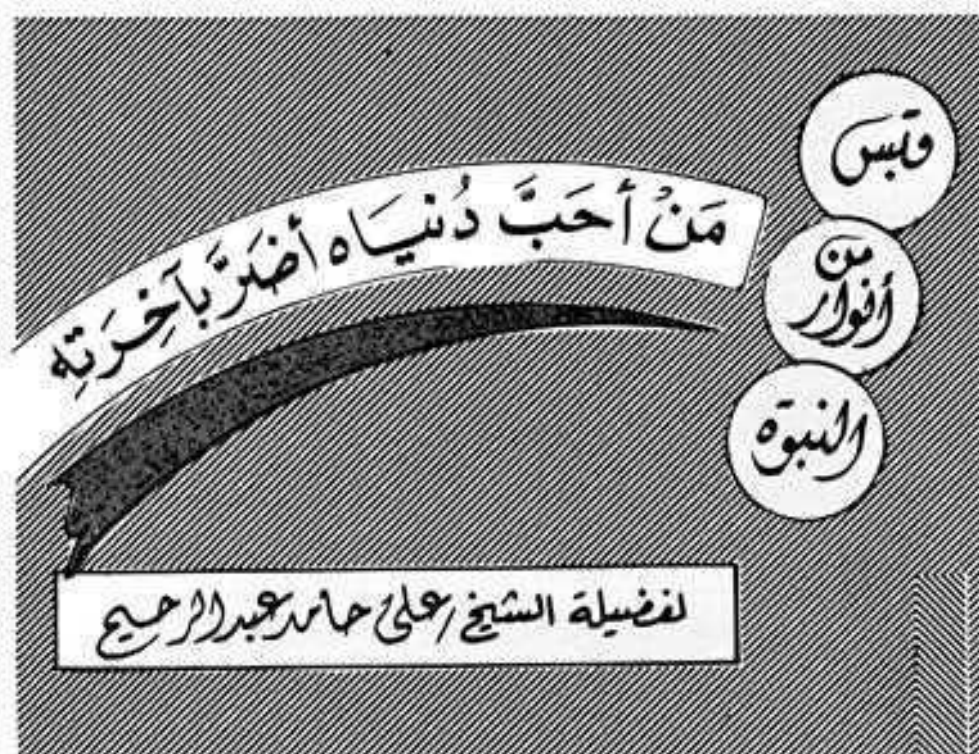 قبس
من
أنوار
النبوة
مَنْ أحَبَّ دُنيَاه أضَرَّ بآخِرَتِهِ
لفضيلة الشيخ / على حامد عبد الرحيم